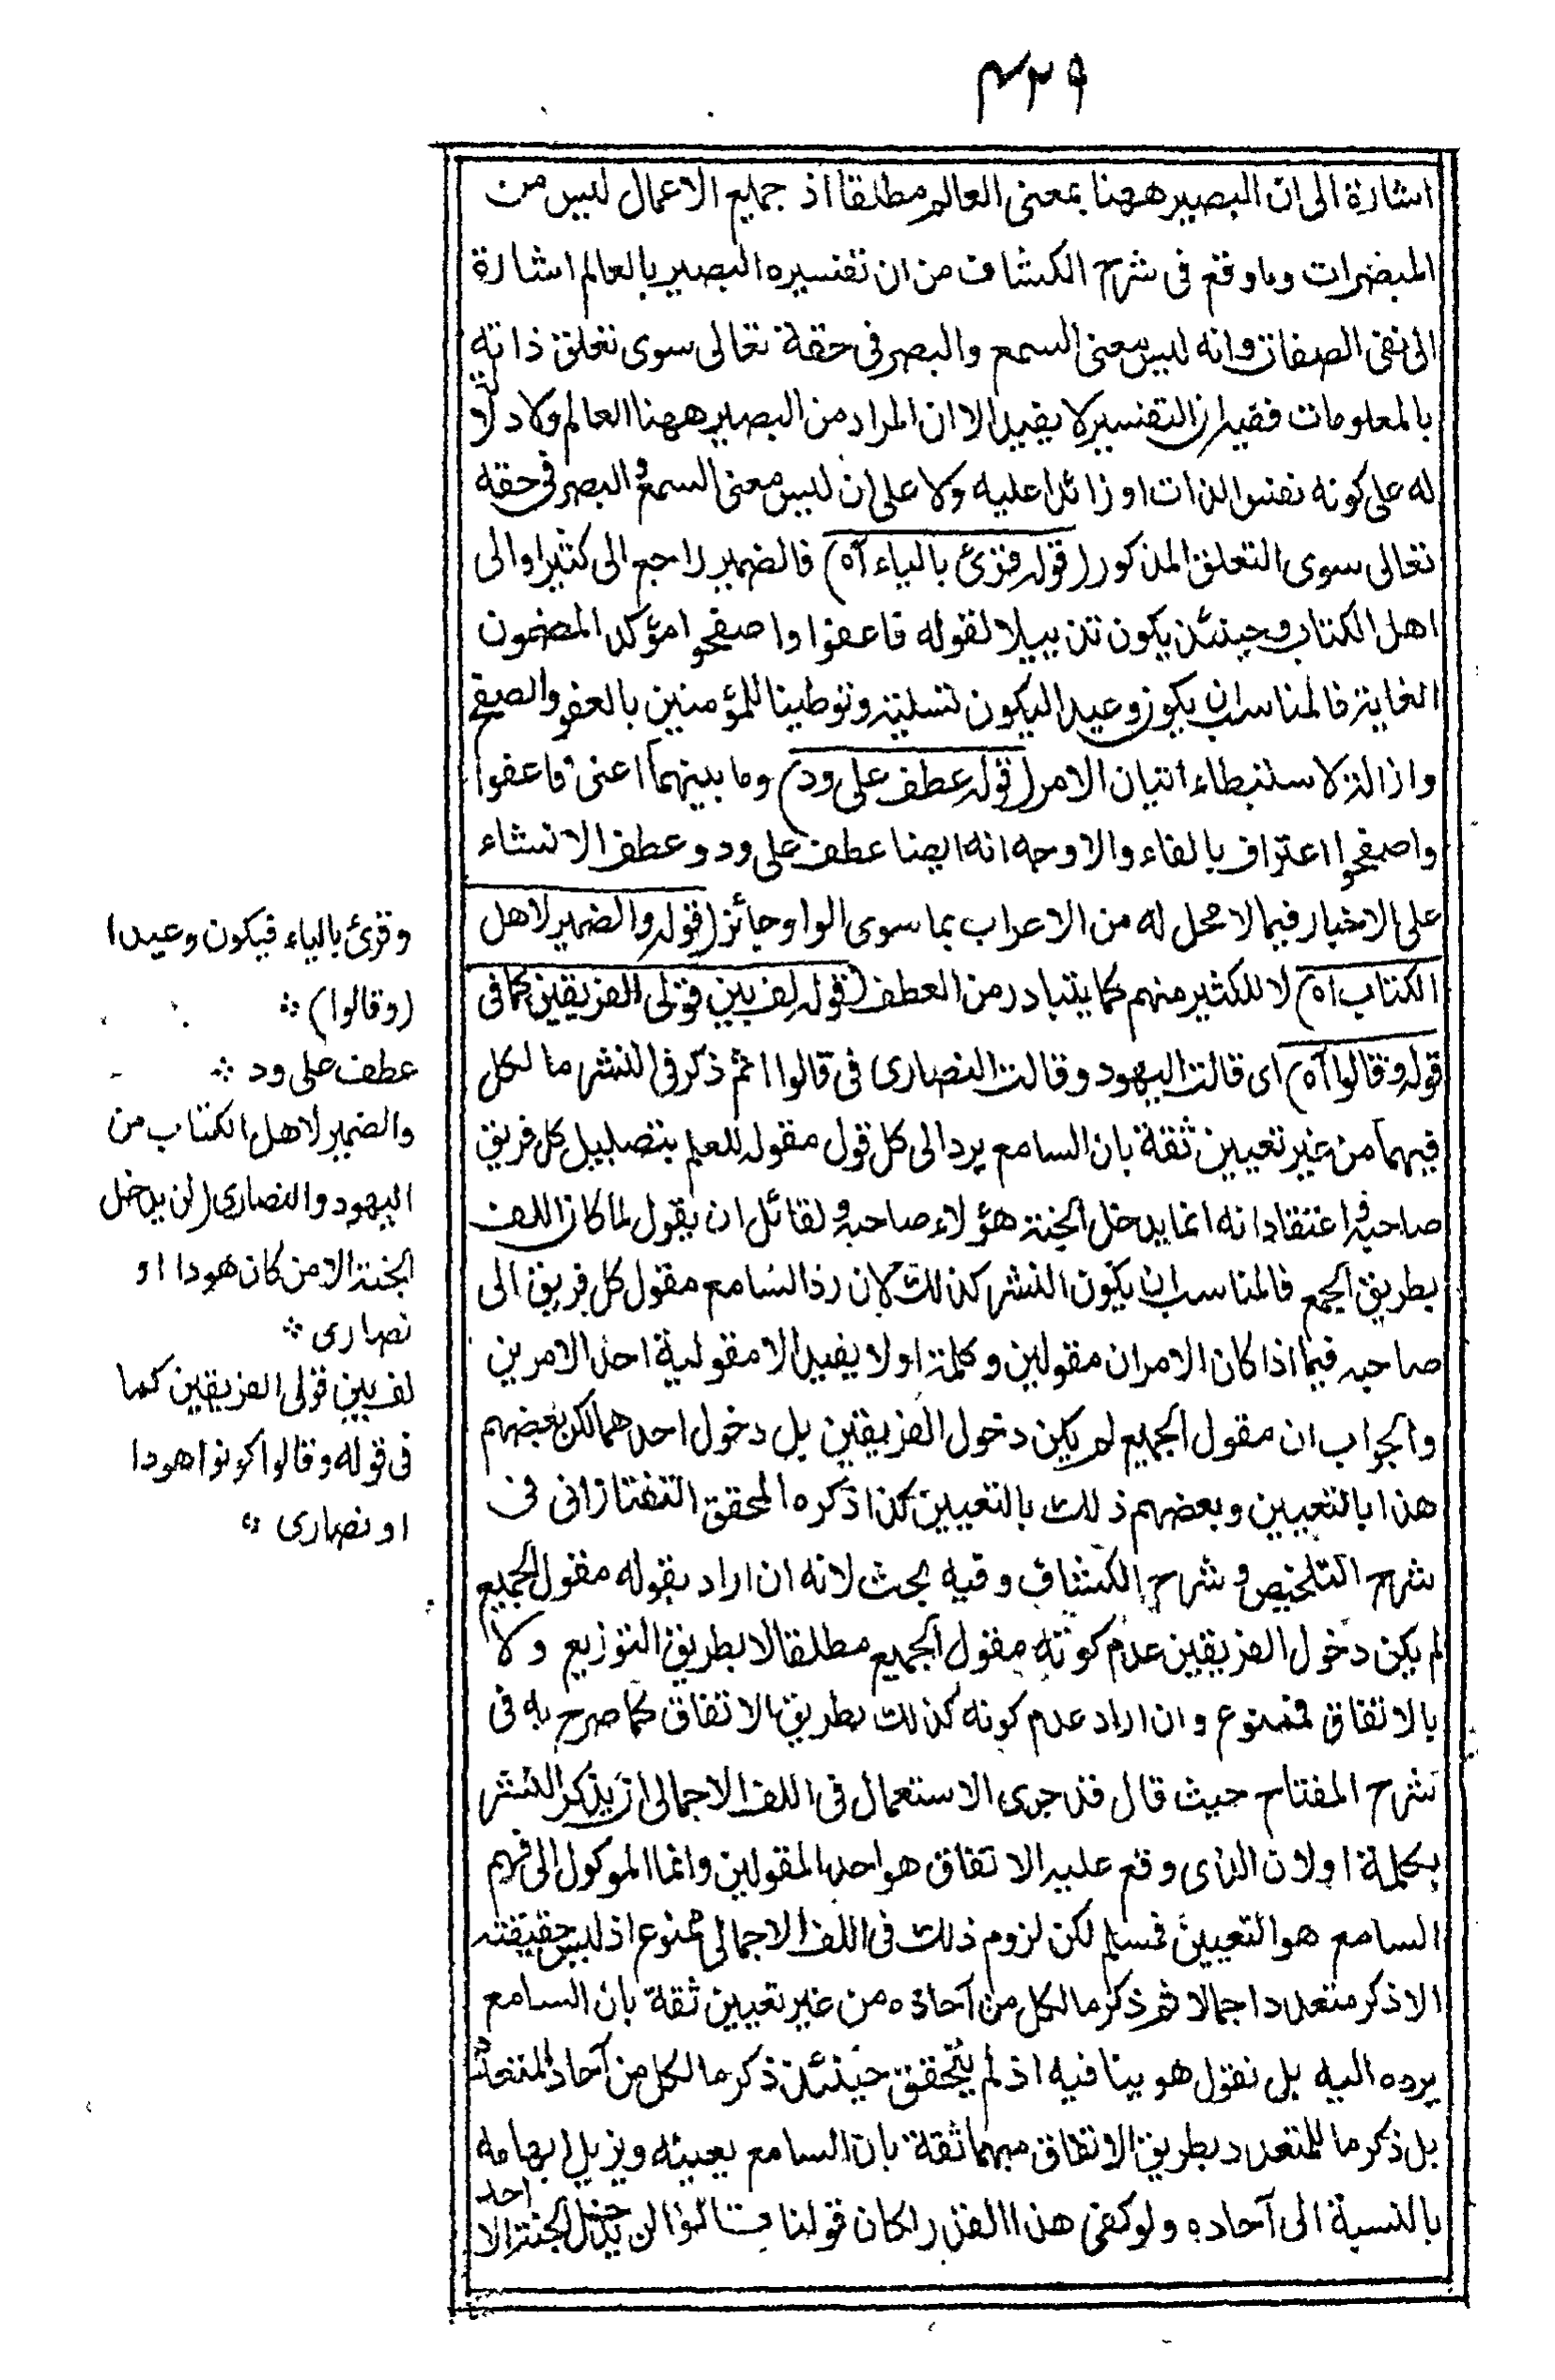 ٤٢٩
اشارة الى ان البصير ههنا بمعنى العالم مطلقا اذ جميع الاعمال ليس من
المبصرات وما وقع فى شرح الكشاف من ان تفسيره البصير بالعالم اشارة
الى نفى الصفات وانه ليس معنى السمع والبصر فى حقه تعالى سوى تعلق ذاته
بالمعلومات ففيه ان التفسير لا يفيد الا ان المراد من البصير ههنا العالم ولا دلالة
له على كونه نفس الذات او زائدا عليه ولا على ان ليس معنى السمع والبصر فى حقه
تعالى سوى التعلق المذكور (قوله وقرئ بالياء آه) فالضمير راجع الى كثير او الى
اهل الكتاب وحينئذ يكون تذييلا لقوله فاعفوا واصفحوا مؤكدا لمضمون
الغاية فالمناسب ان يكون وعيدا ليكون تسلية وتوطينا للمؤمنين بالعفو والصفح
وازالة لاستبطاء اتيان الامر (قوله عطف على ود) وما بينهما اعنى فاعفوا
واصفحوا اعتراف بالفاء والاوجه انه ايضا عطف على ود وعطف الانشاء
على الاخبار فيما لا محل له من الاعراب بما سوى الواو جائز (قوله والضمير لاهل
الكتاب اه) لا للكثير منهم كما يتبادر من العطف (قوله لف بين قولى الفريقين كما فى
قوله وقالوا آه) اى قالت اليهود وقالت النصارى فى قالوا ثم ذكر فى النشر ما لكل
فيهما من غير تعيين ثقة بان السامع يرد الى كل قول مقوله للعلم بتضليل كل فريق
صاحبه فى اعتقاد انه انما يدخل الجنة هؤلاء صاحبه ولقائل ان يقول لما كان اللف
بطريق الجمع فالمناسب ان يكون النشر كذلك لان رد السامع مقول كل فريق الى
صاحبه فيما اذا كان الامران مقولين وكلمة او لا يفيد الا مقولية احد الامرين
والجواب ان مقول الجميع لم يكن دخول الفريقين بل دخول احدهما لكن بعضهم
هذا بالتعيين وبعضهم ذلك بالتعيين كذا ذكره المحقق التفتازانى فى
شرح التلخيص وشرح الكشاف وفيه بحث لانه ان اراد بقوله مقول الجميع
لم يكن دخول الفريقين عدم كونه مقول الجميع مطلقا لا بطريق التوزيع ولا
بالاتفاق فممنوع وان اراد عدم كونه كذلك بطريق الاتفاق كما صرح به فى
شرح المفتاح حيث قال قد جرى الاستعمال فى اللف الاجمالى ان يذكر النشر
بكلمة او لان الذى وقع عليه الاتفاق هو احد المقولين وانما الموكول الى فهم
السامع هو التعيين فمسلم لكن لزوم ذلك فى اللف الاجمالى ممنوع اذ ليس حقيقته
الا ذكر متعدد اجمالا ثم ذكر ما لكل من آحاده من غير تعيين ثقة بان السامع
يرده اليه بل نقول هو ينافيه اذ لم يتحقق حينئذ ذكر ما لكل من آحاد المتعدد
بل ذكر ما للمتعدد بطريق الاتفاق مبهما ثقة بان السامع يعينه ويزيل ابهامه
بالنسبة الى آحاده ولو كفى هذا القدر لكان قولنا قالوا لن يدخل احد الجنة الا
وقرئ بالياء فيكون وعيدا
(وقالوا) ⁘
عطف على ود ⁘
والضمير لاهل الكتاب من
اليهود والنصارى (لن يدخل
الجنة الا من كان هودا او
نصارى ⁘
لف بين قولى الفريقين كما
فى قوله وقالوا كونوا هودا
او نصارى